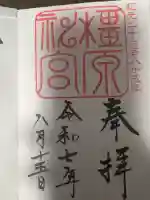 奉拝
橿原
神宮
令和七年
八月十五日